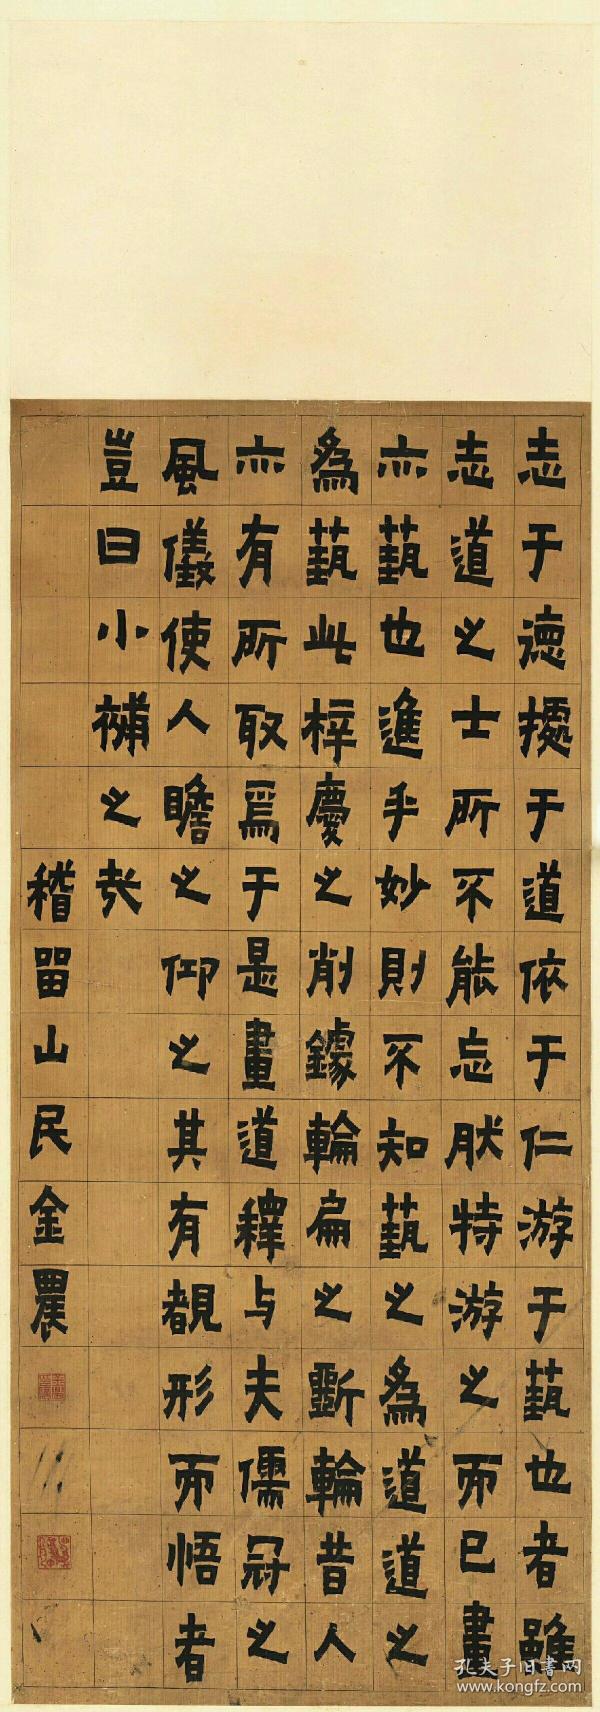 志于德㨿于道依于仁游于藝也者雖
志道之士所不能忘肰特游之而已畫
亦藝也進乎妙則不知藝之為道道之
為藝此梓慶之削鐻輪扁之斲輪昔人
亦有所取焉于是畫道釋与夫儒冠之
風儀使人瞻之仰之其有覩形而悟者
豈曰小補之㢤
稽留山民金農
孔夫子旧書网
www.kongfz.com